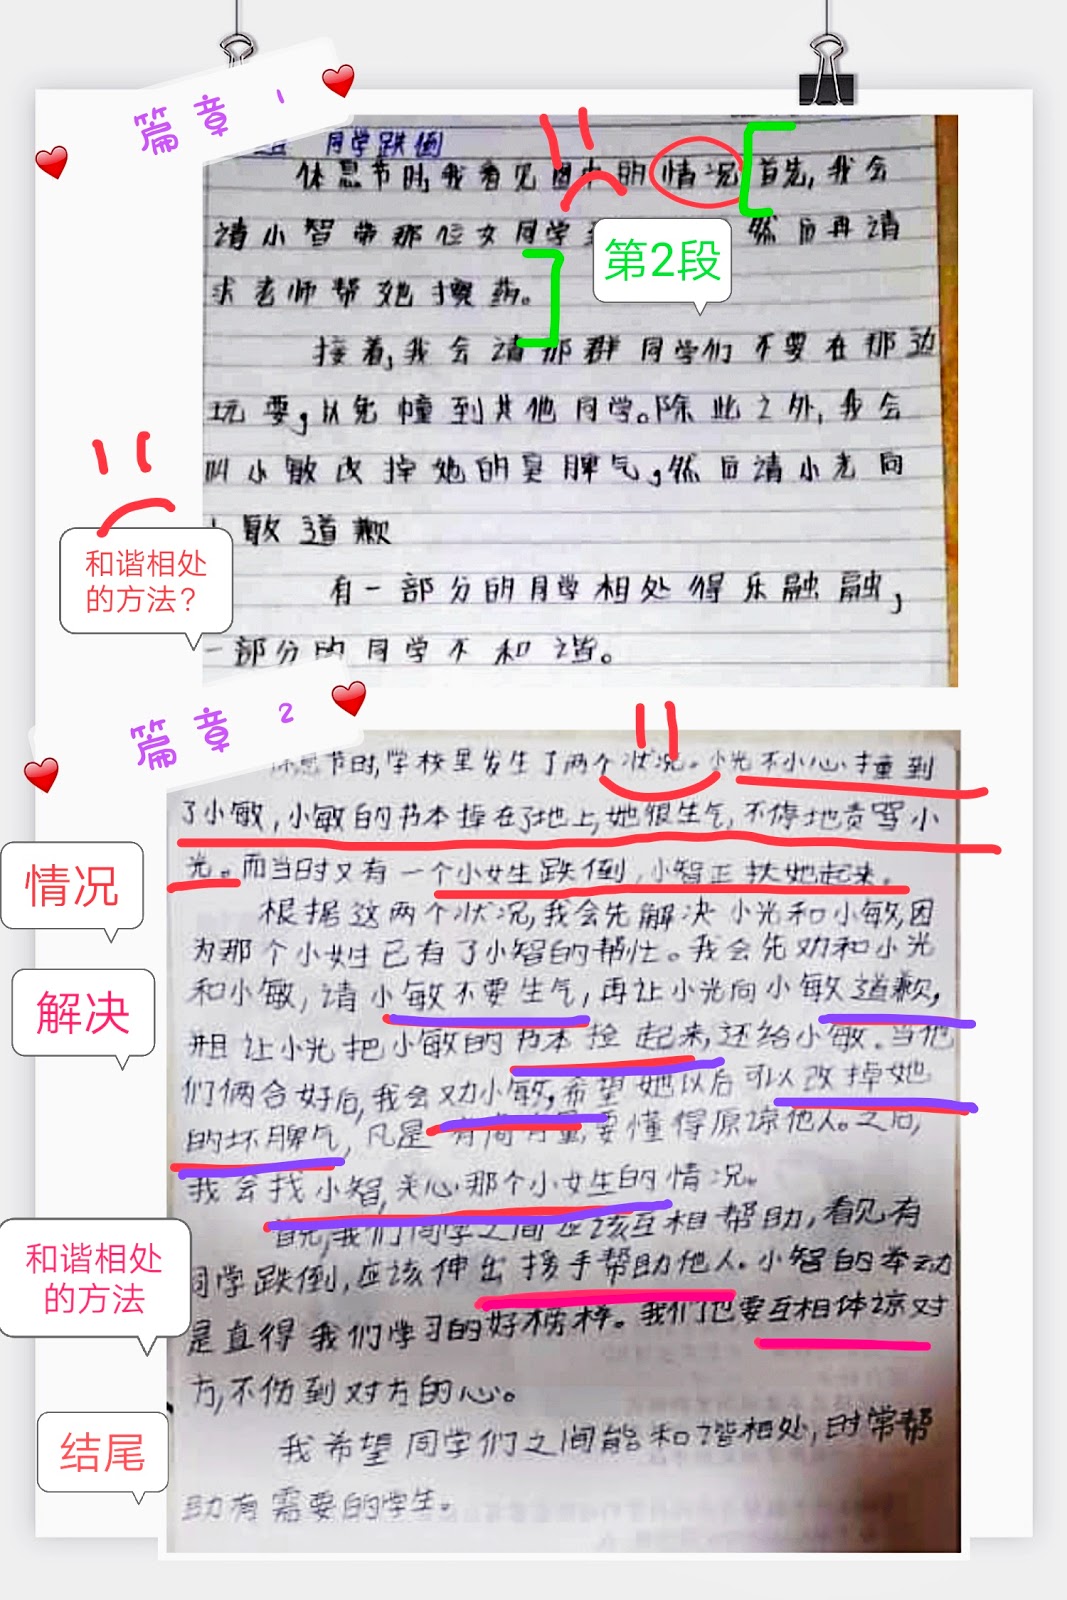 篇章 1
同学跌倒
休息节时,我看见图中的情况 首先,我会
请小智带那位女同学 然后再请
求老师帮她擦药。
第2段
接着,我会请那群同学们不要在那边
玩耍,以免幢到其他同学。除此之外,我会
叫小敏改掉她的臭脾气,然后请小光向
敏道歉
和谐相处
的方法？
有一部分的同学相处得乐融融,
一部分的同学不和谐。
篇章 2
休息节时,学校里发生了两个状况。小光不小心撞到
了小敏,小敏的书本掉在了地上,她很生气,不停地责骂小
光。而当时又有一个小女生跌倒,小智正扶她起来。
情况
根据这两个状况,我会先解决小光和小敏,因
为那个小女生已有了小智的帮忙。我会先劝和小光
和小敏,请小敏不要生气,再让小光向小敏道歉,
解决
并且让小光把小敏的书本捡起来,还给小敏。当他
们俩合好后,我会劝小敏,希望她以后可以改掉她
的坏脾气,凡是有商有量,要懂得原谅他人。之后,
我会找小智,关心那个小女生的情况。
首先,我们同学之间应该互相帮助,看见有
同学跌倒,应该伸出援手帮助他人。小智的举动
和谐相处
的方法
是直得我们学习的好榜样。我们也要互相体谅对
方,不伤到对方的心。
结尾
我希望同学们之间能和谐相处,时常帮
助有需要的学生。